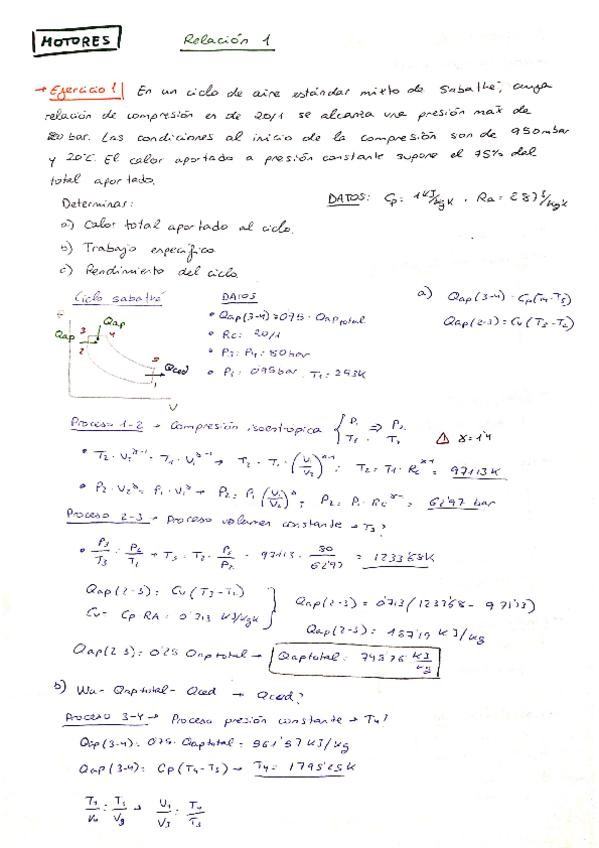 MOTORES
Relación 1
→ Ejercicio 1 En un ciclo de aire estándar mixto de Sabathé, cuya
relación de compresión es de 20/1 se alcanza una presión max de
80 bar. Las condiciones al inicio de la compresión son de 950 mbar
y 20°C. El calor aportado a presión constante supone el 75% del
total aportado.
Determinar:
DATOS: Cp = 1 KJ/KgK · Ra = 287 J/KgK
a) Calor total aportado al ciclo.
b) Trabajo específico
c) Rendimiento del ciclo
Ciclo sabathé
DATOS
a) Qap(3-4) = Cp(T4-T3)
Qap(2-3) = Cv(T3-T2)
Qap
Qap 3 4
2
5
Qced
1
V
• Qap(3-4) = 0'75 · Qap total
• Rc = 20/1
• P3 = P4 = 80 bar
• P1 = 0'95 bar T1 = 293K
Proceso 1-2 → Compresión isoentrópica { P1 T1 ⇒ P2 T2
⚠ γ = 1'4
• T2 · V2^γ-1 = T1 · V1^γ-1 → T2 = T1 · (V1/V2)^γ-1 ; T2 = T1 · Rc^γ-1 = 971'13 K
• P2 · V2^γ = P1 · V1^γ → P2 = P1 (V1/V2)^γ ; P2 = P1 · Rc^γ = 62'97 bar
Proceso 2-3 → Proceso volumen constante → T3?
• P3/T3 = P2/T2 → T3 = T2 · P3/P2 = 971'13 · 80/62'97 = 1233'68K
Qap(2-3) = Cv(T3-T2)
Cv = Cp - RA = 0'713 KJ/KgK
Qap(2-3) = 0'713 (1233'68 - 971'13)
Qap(2-3) = 187'19 KJ/Kg
Qap(2-3) = 0'25 Qap total → Qap total = 748'76 KJ/Kg
b) Wu = Qap total - Qced → Qced?
Proceso 3-4 → Proceso presión constante → T4?
Qap(3-4) = 0'75 · Qap total = 561'57 KJ/Kg
Qap(3-4) = Cp(T4-T3) → T4 = 1795'25K